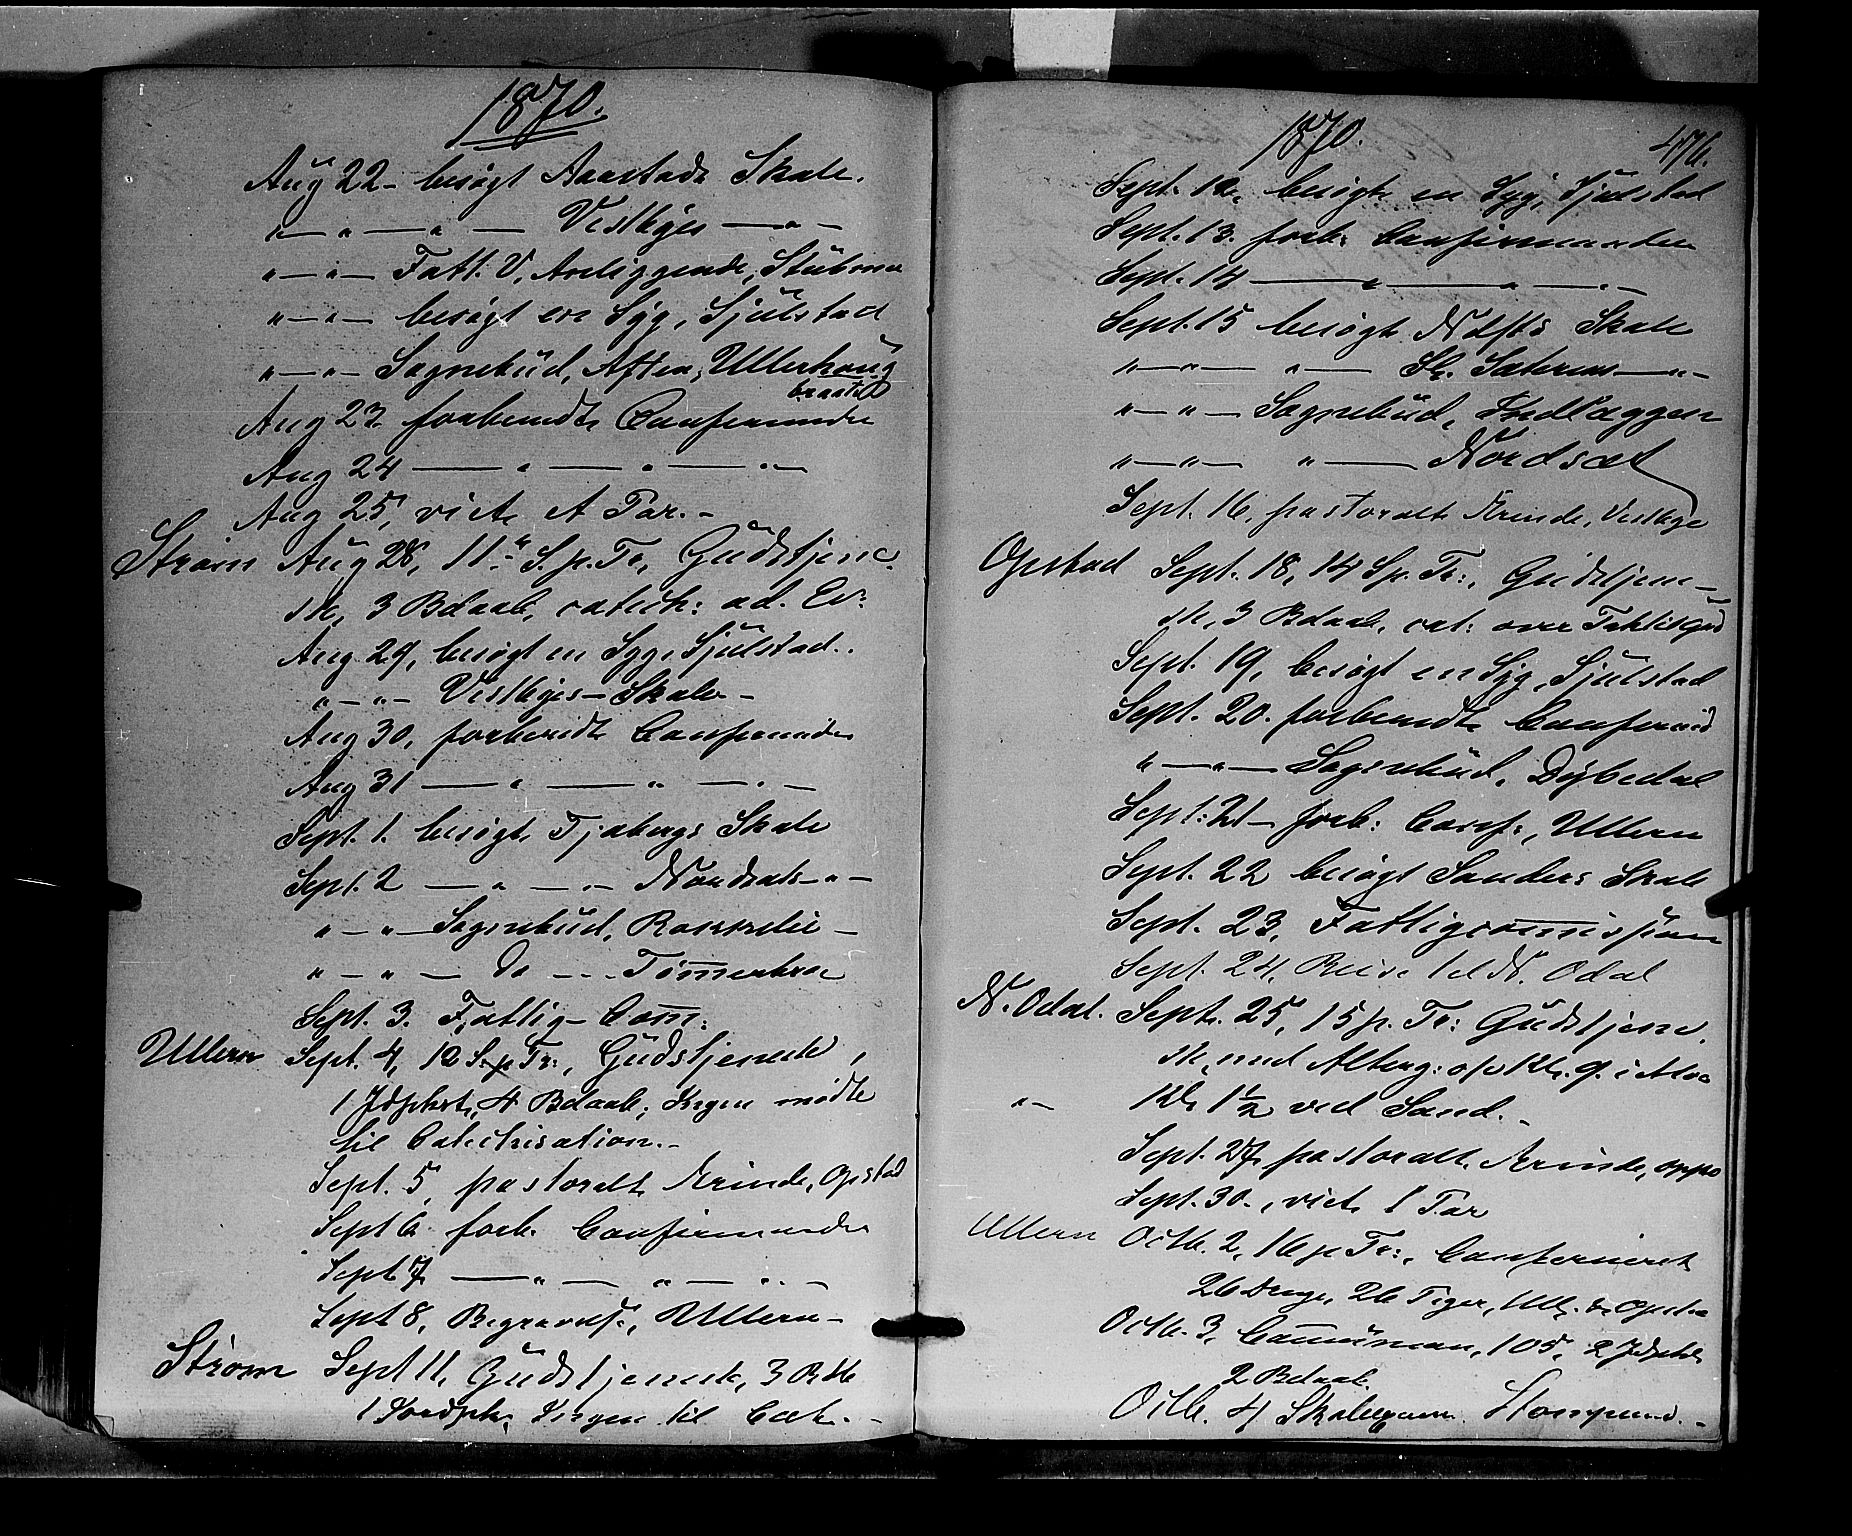 1870.
Aug 22 - besøgt Aaastads Skole.
" — " — " — Vestbyes — " —
" — " — Fatt. V. Anliggende, Stubsrud
" — " — besøgt en Syg, Sjulstad
" — " — Sognebud, Aften, Ullerhaug
braaten
Aug 23 forberedt Confirmander
Aug 24 — " — " — " —
Aug 25, viet et Par. -
Strøm Aug 28, 11te S. p. Tr, Gudstjene.
ste, 3 Bdaab, catech: ad. Ev:
Aug 29, besøgt en Syg, Sjulstad.
" — " — Vestbyes - Skole -
Aug 30, forberedt Confirmander
Aug 31 — " — " — " —
Sept. 1. besøgt Tjabergs Skole
Sept. 2 — " — " — Nordsæts - " -
" — " — Sognebud, Rokkelie -
" — " — do - - - Tømmerbroe
Sept. 3. Fattig - Com:
Ullern Sept. 4, 12 S. p Tr:, Gudstjeneste,
1 Jdphst, 4 Bdaab, Ingen mødte
til Catechisation. -
Sept. 5, pastoralt Ærinde, Opstad
Sept 6 forb. Confirmander
Sept 7 — " — " — " —
Sept 8, Begravelse, Ullern -
Strøm Sept 11, Gudstjeneste, 3 Bdb
1 Jordph, Ingen til Cat. -
1870. 476.
Sept. 12, besøgt en Syg, Sjulstad
Sept. 13. forb: Confirmander
Sept. 14 — " — " — " —
Sept. 15 besøgt Skole
" — " — " — St. Sæterens — " —
" — " — Sognebud, Indlæggen
" — " — " — Nordsæt
Sept. 16, pastoralt Ærinde, Vestbye
Opstad Sept. 18, 14 S p. Tr:, Gudstjene-
ste, 3 Bdaab, cat: over
Sept. 19, besøgt en Syg, Sjulstad
Sept. 20. forberedt Confirmd
" — " — Sognebud, Dybedal
Sept. 21 - forb: Conf:, Ullern
Sept. 22 besøgt Sanders Skole
Sept. 23, Fattigcommission
Sept. 24, Reise til N. Odal
N. Odal. Sept. 25, 15 p. Tr: Gudstjene.
ste, med Alterg: Kl. 9. i Mo
" — Kl. 1½ ved Sand. -
Sept. 27 pastoralt Ærinde,
Sept. 30., viet 1 Par
Ullern Octb. 2, 16 p Tr:, Confirmeret
26 Drenge, 26 Piger, Ull: & Opstad
Octb. 3, Communion, 105, 2 Jdphst
2 Bdaab.
Octb. 4 Skoleexamen.